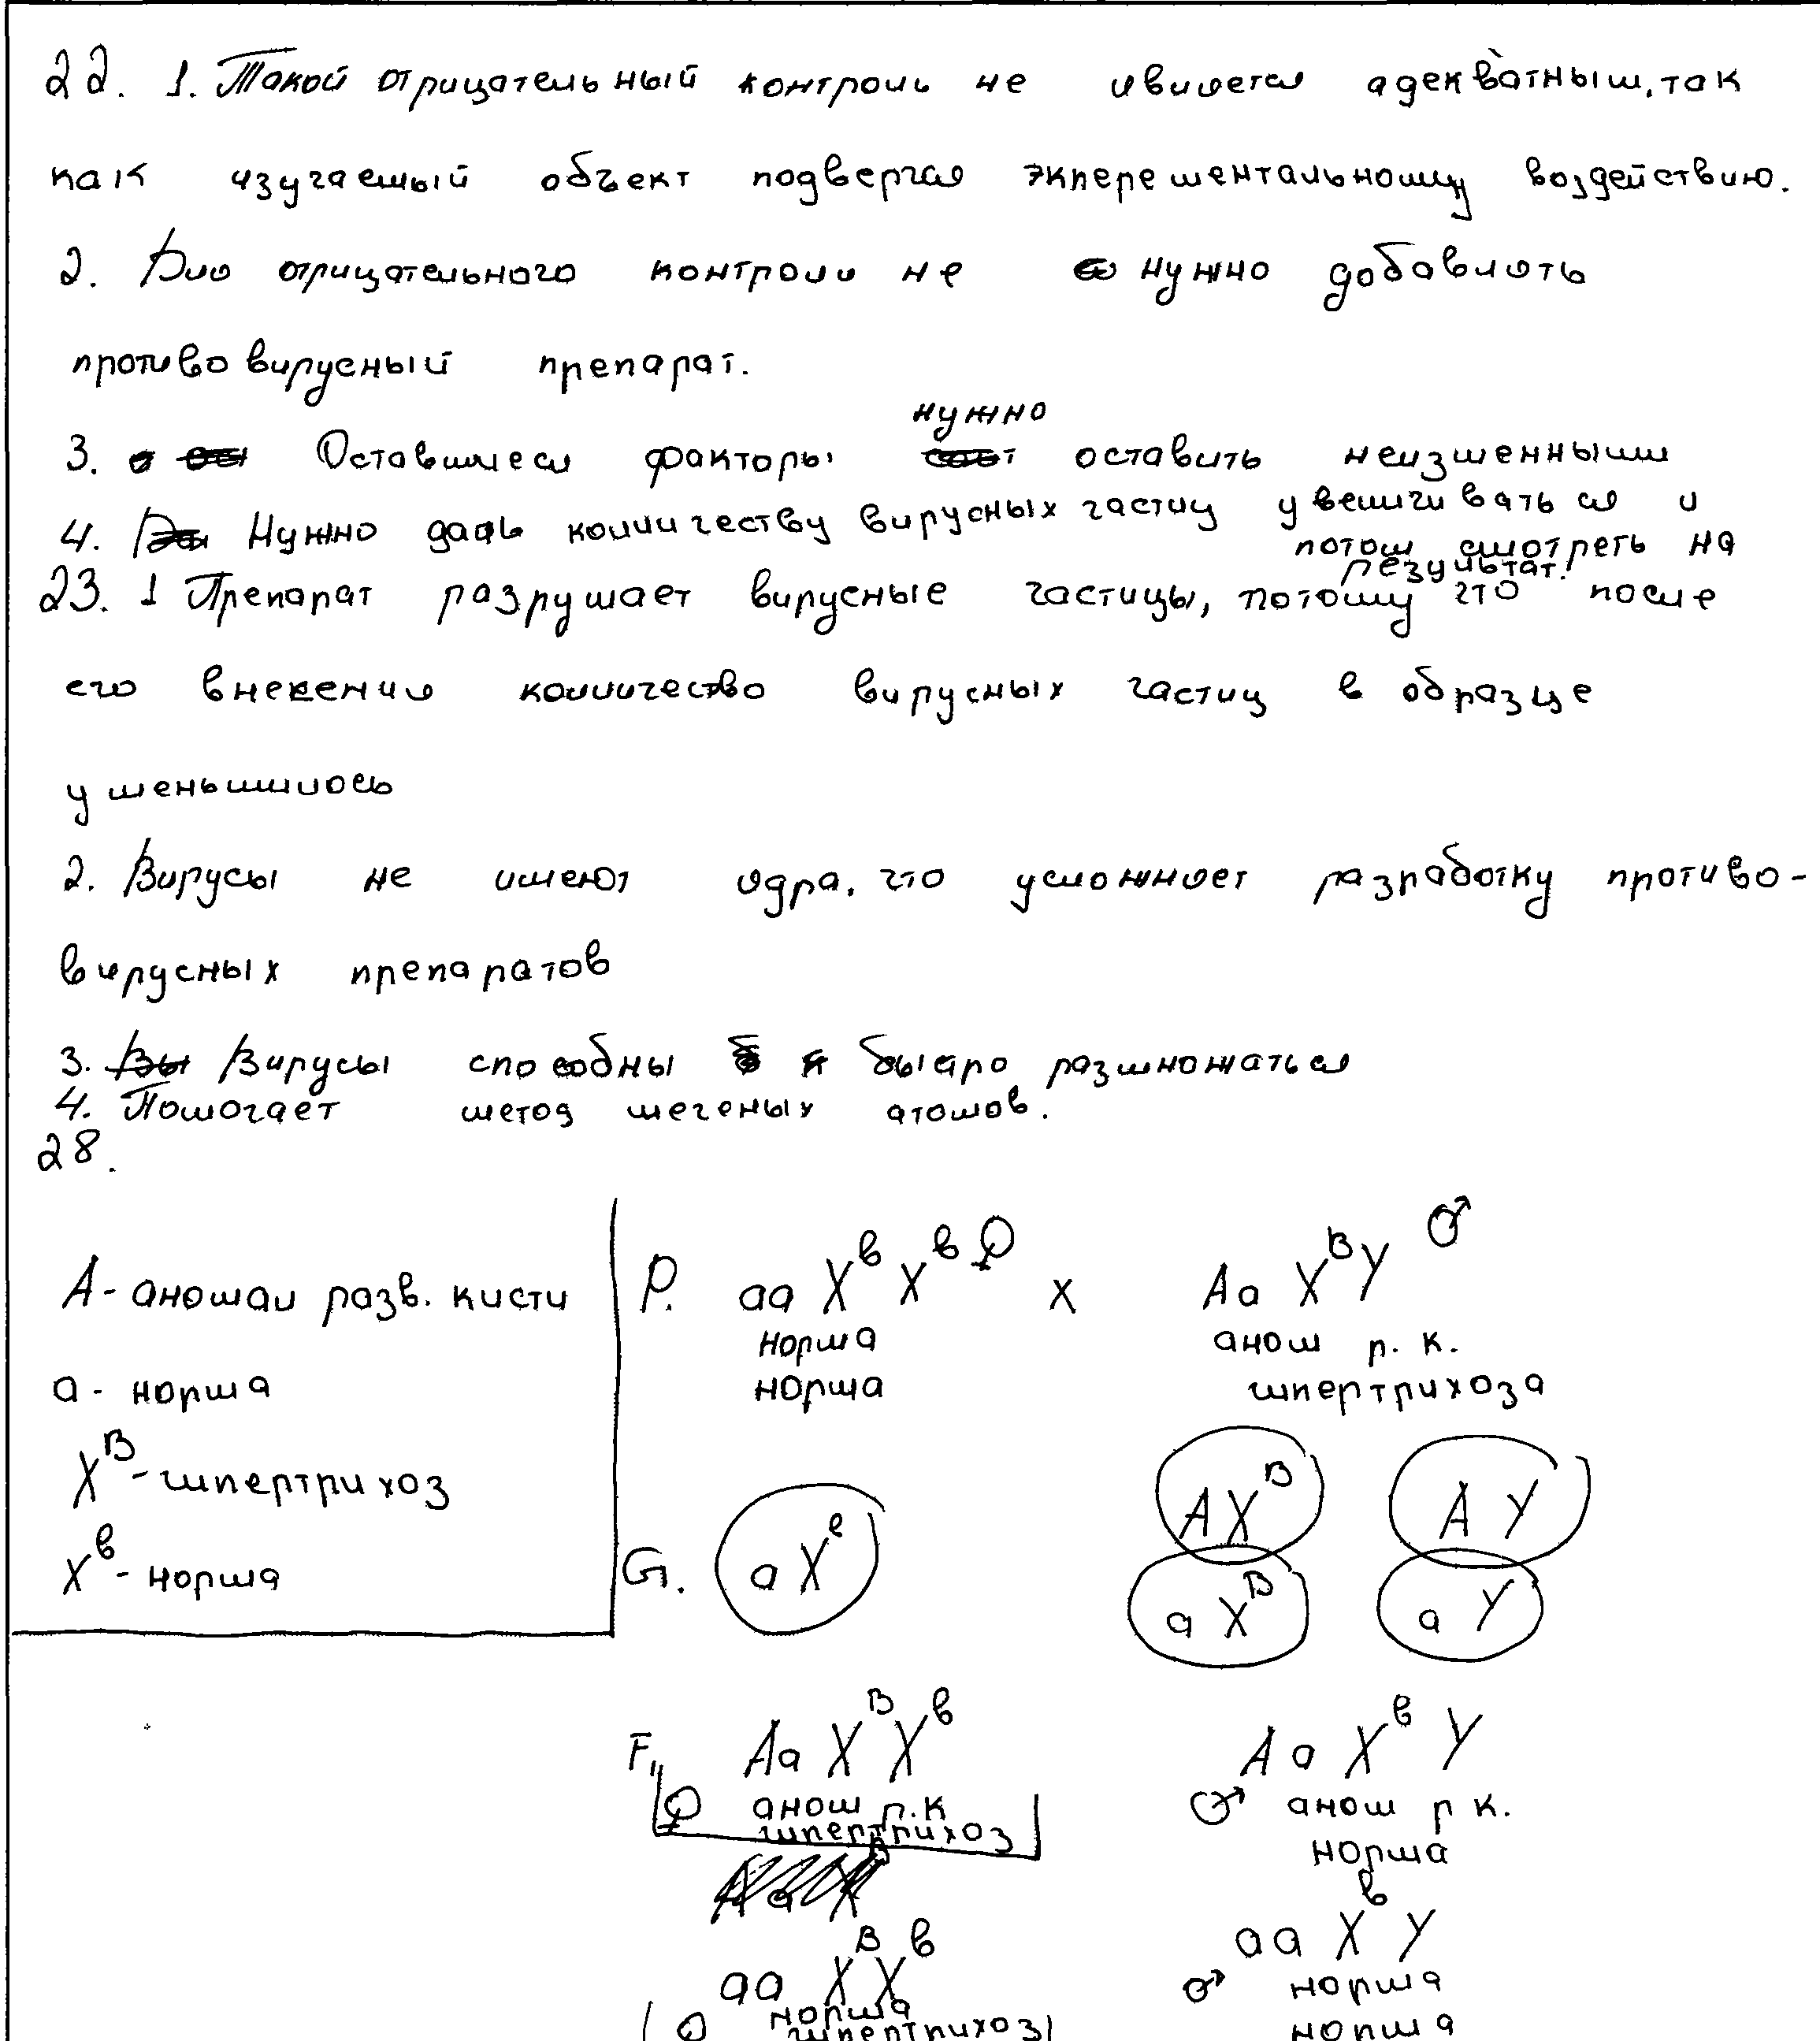 22. 1. Такой отрицательный контроль не является адекватным, так
как изучаемый объект подвергся экперементальному воздействию.
2. Для отрицательного контроля не нужно добавлять
противовирусный препарат.
нужно
3. Оставшиеся факторы оставить неизменными
4. Нужно дать количеству вирусных частиц увеличиваться и
потом смотреть на
результат.
23. 1 Препарат разрушает вирусные частицы, потому что после
его внесения количество вирусных частиц в образце
уменьшилось
2. Вирусы не имеют ядра, что усложняет разработку противо-
вирусных препаратов
3. Вирусы способны быстро размножаться
4. Помогает метод меченых атомов.
28.
A - аномал разв. кисти
a - норма
X^B - гипертрихоз
X^b - норма
P. aa X^b X^b ♀ x Aa X^B Y ♂
норма аном р. к.
норма гипертрихоза
G. a X^b A X^B A Y
a X^B a Y
F1, Aa X^B X^b Aa X^b Y
♀ аном р.к ♂ аном р к.
гипертрихоз норма
aa X^B X^b aa X^b Y
♀ норма ♂ норма
гипертрихоз норма